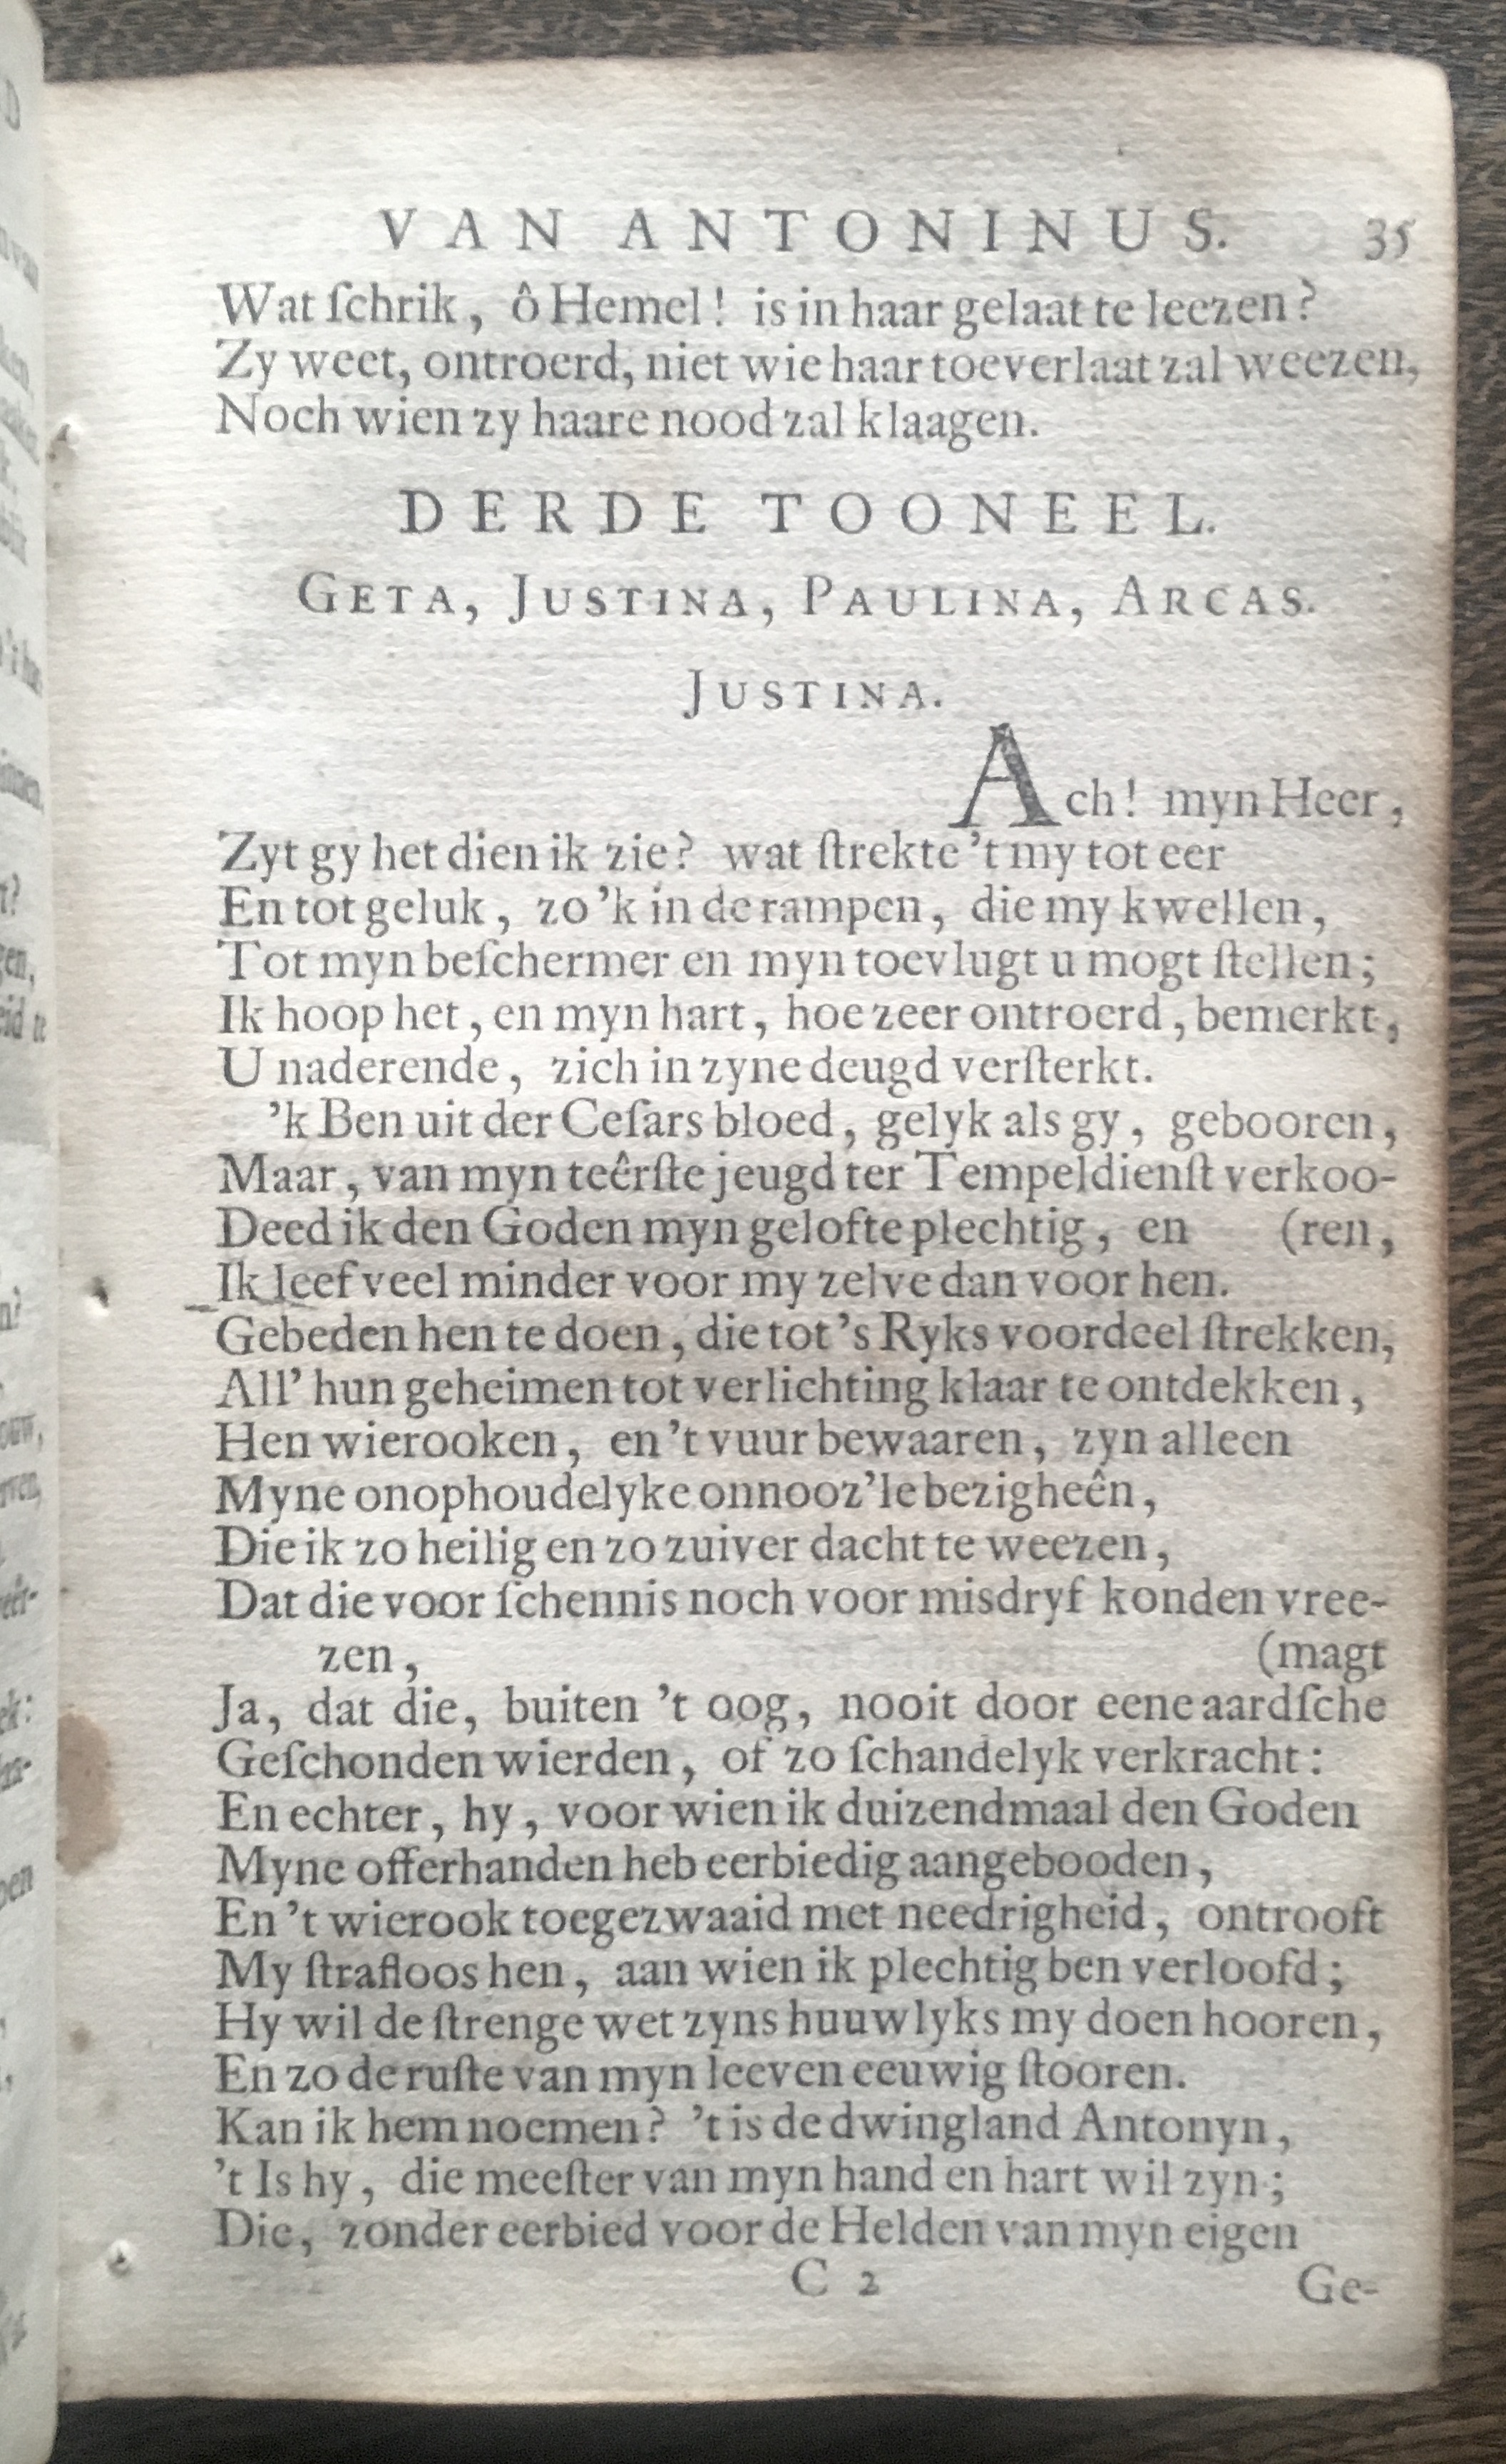 VAN ANTONINUS. 35
Wat ſchrik, ô Hemel! is in haar gelaat te leezen?
Zy weet, ontroerd, niet wie haar toeverlaat zal weezen,
Noch wien zy haare nood zal klaagen.
DERDE TOONEEL.
GETA, JUSTINA, PAULINA, ARCAS.
JUSTINA.
Ach! myn Heer,
Zyt gy het dien ik zie? wat ſtrekte 't my tot eer
En tot geluk, zo 'k in de rampen, die my kwellen,
Tot myn beſchermer en myn toevlugt u mogt ſtellen;
Ik hoop het, en myn hart, hoe zeer ontroerd, bemerkt,
U naderende, zich in zyne deugd verſterkt.
'k Ben uit der Ceſars bloed, gelyk als gy, gebooren,
Maar, van myn teêrſte jeugd ter Tempeldienſt verkoo-
Deed ik den Goden myn gelofte plechtig, en (ren,
Ik leef veel minder voor my zelve dan voor hen.
Gebeden hen te doen, die tot 's Ryks voordeel ſtrekken,
All' hun geheimen tot verlichting klaar te ontdekken,
Hen wierooken, en 't vuur bewaaren, zyn alleen
Myne onophoudelyke onnooz'le bezigheên,
Die ik zo heilig en zo zuiver dacht te weezen,
Dat die voor ſchennis noch voor misdryf konden vree-
zen, (magt
Ja, dat die, buiten 't oog, nooit door eene aardſche
Geſchonden wierden, of zo ſchandelyk verkracht:
En echter, hy, voor wien ik duizendmaal den Goden
Myne offerhanden heb eerbiedig aangebooden,
En 't wierook toegezwaaid met needrigheid, ontrooft
My ſtrafloos hen, aan wien ik plechtig ben verloofd;
Hy wil de ſtrenge wet zyns huuwlyks my doen hooren,
En zo de ruſte van myn leeven eeuwig ſtooren.
Kan ik hem noemen? 't is de dwingland Antonyn,
't Is hy, die meeſter van myn hand en hart wil zyn;
Die, zonder eerbied voor de Helden van myn eigen
C 2 Ge-